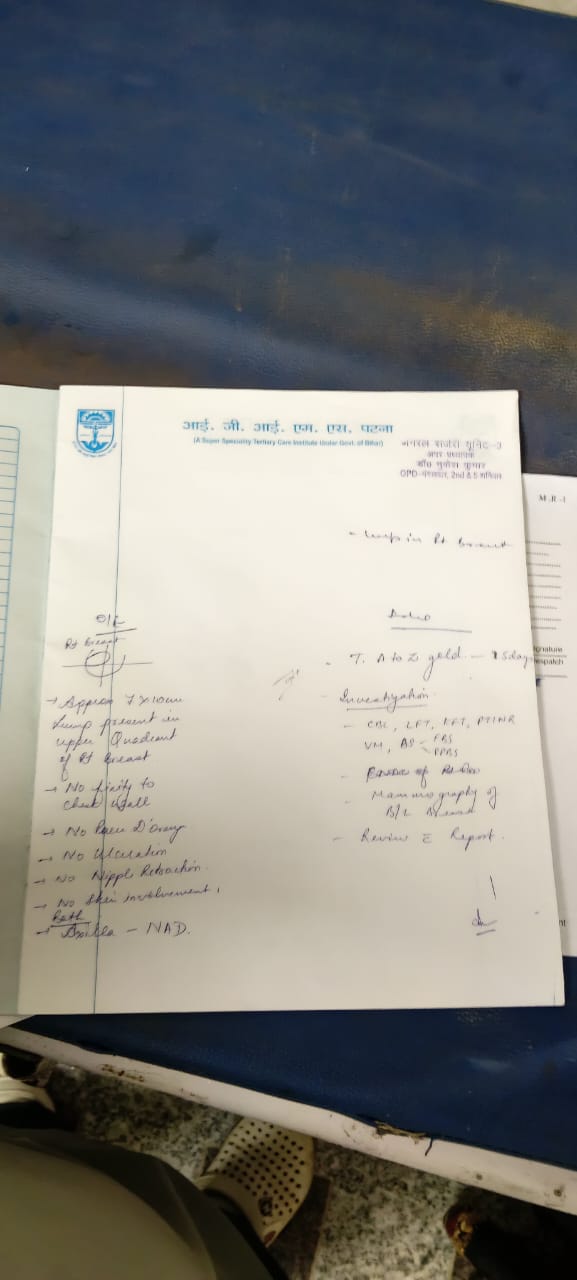 आई. जी. आई. एम. एस. पटना
(A Super Speciality Tertiary Care Institute Under Govt. of Bihar)
जनरल सर्जरी यूनिट-3
अपर प्राध्यापक
OPD- 2nd & 5
M-R-I
- Lump in Rt breast
O/E
Rt Breast
→ Approx 7 x 10 cm
Lump present in
upper Quadrant
of Rt breast
→ No fixity to
chest wall
→ No Peau D'orange
→ No Ulceration
→ No Nipple Retraction
→ No skin involvement
Both
→ Axilla – NAD.
Adv
- T. A to Z gold — 15 days
- Investigation
- CBC, LFT, KFT, PT/INR
VM, BS - FBS
PPBS
- Mammography of
B/L Breast
- Review c̄ Report.
signature